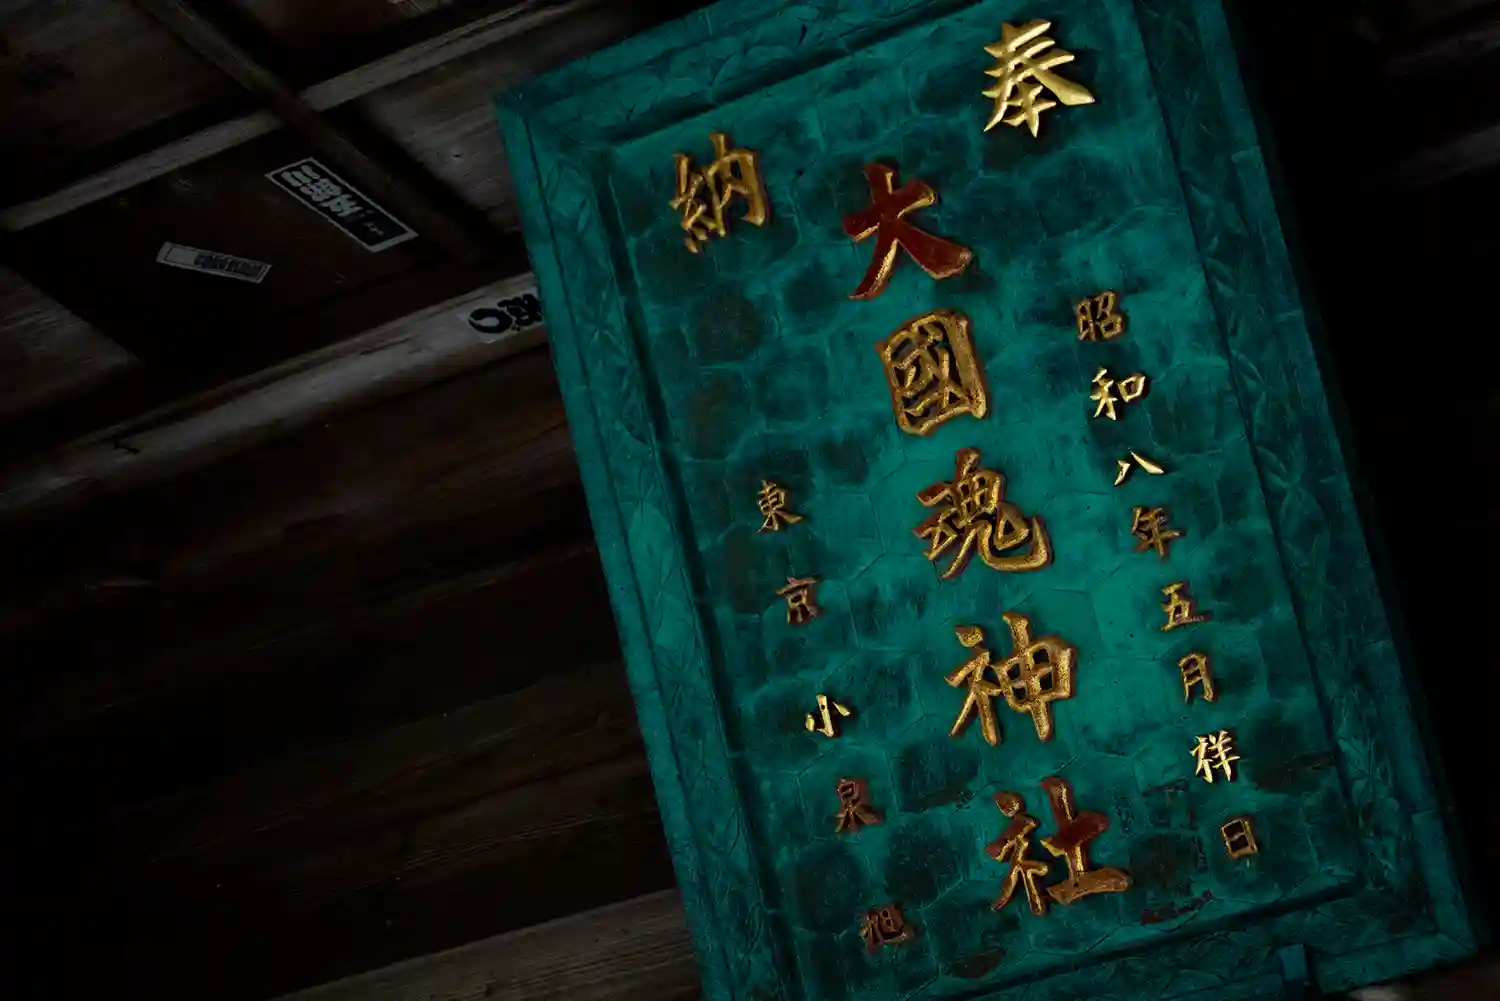 奉
納
昭和八年五月祥日
大國魂神社
東京小泉旭